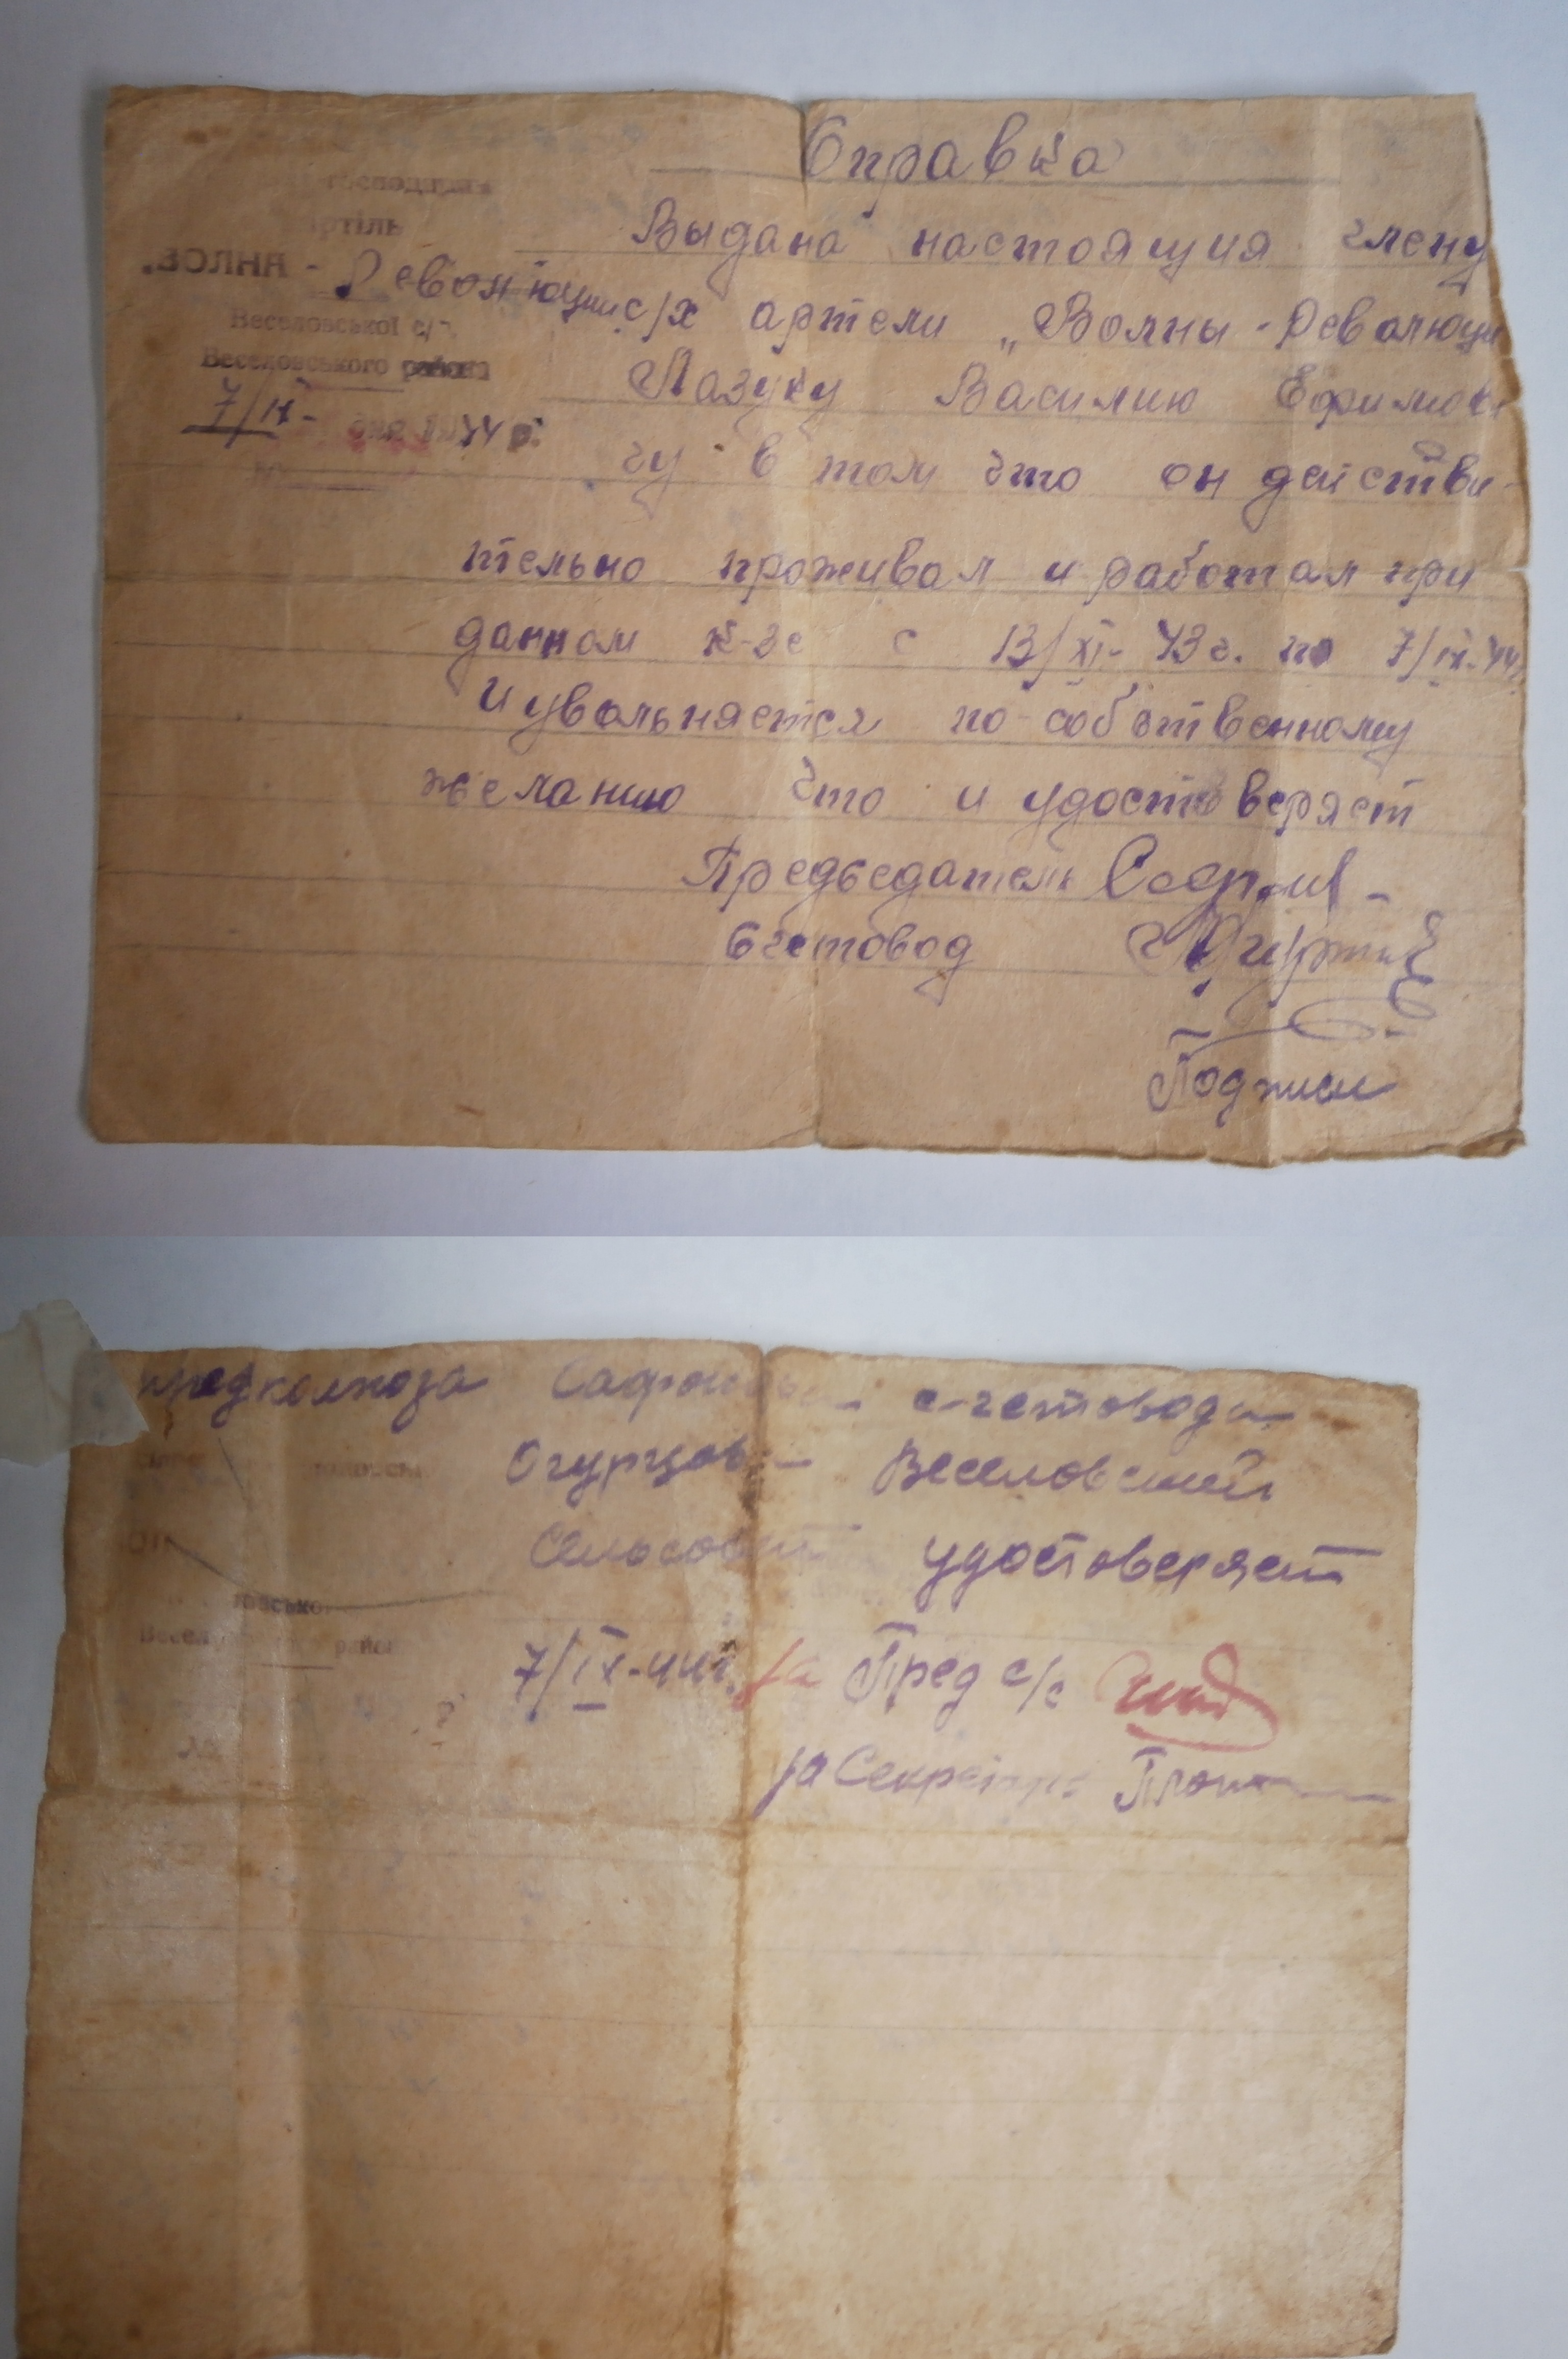 Справка
господарська
артіль
„ВОЛНА - Революции
Веселовської с/р.
Веселовського района
7/IX- 44 р.
Выдана настоящия члену
с/х артели „Волны - Революци
Лазуку Василию Ефимови
чу в том что он действи-
тельно проживал и работал при
данном к-зе с 13/XI- 43 г. по 7/IX-44
и увольняется по собственному
желанию что и удостоверяет
Председатель
Счетовод
Подписи
предколхоза Сафонова счетовода
Огурцов Веселовский
Сельсовет удостоверяет
7/IX-44г. за Пред с/с
за Секретарь